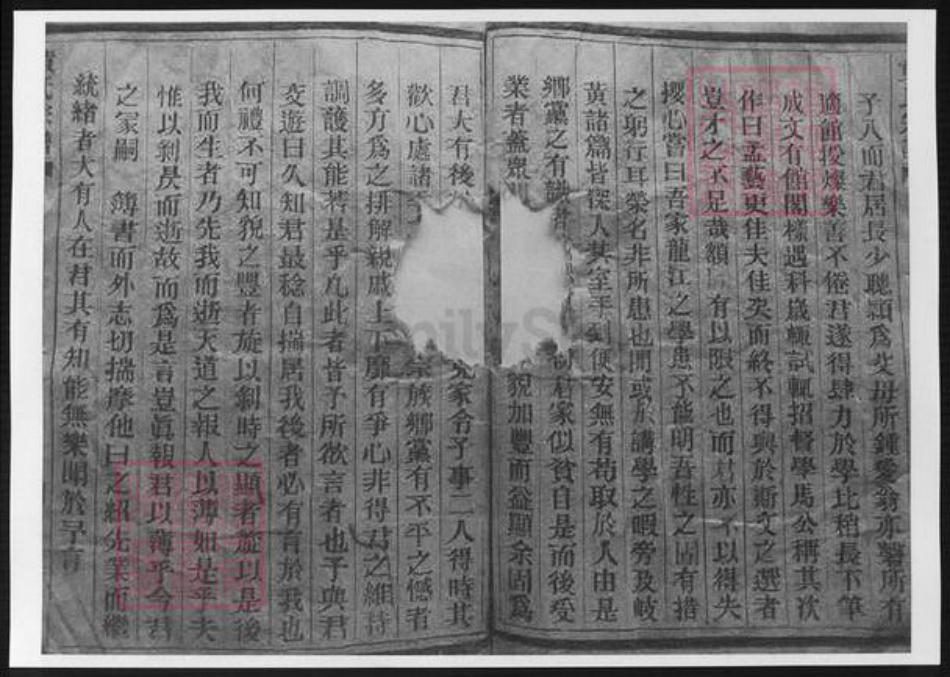 子八而君居長少聰頴爲父母所鍾愛翁亦罄所有
適館授燦樂善不倦君遂得肆力於學比稍長下筆
成文有館閣樣遇科歲輒試輒招督學馬公稱其次
作曰孟藝更佳夫佳矣而終不得與於斯文之選者
豈才之不足哉額有以限之也而君亦不以得失
攖心嘗曰吾家龍江之學患不能明吾性之固有措
之躬行耳榮名非所患也間或於講學之暇旁及岐
黃諸篇皆探人其室平到便安無有苟取於人由是
鄉黨之有 君家似貧自是而後受
業者蓋衆 貌加豐而益顯余固爲
君大有後 兄家令子事二人得時其
歡心處諸 宗族鄉黨有不平之憾者
多方爲之排解親戚上下靡有爭心非得君之維持
調護其能若是乎凡此者皆予所欲言者也予與君
交遊日久知君最稔自揣居我後者必有言於我也
何禮不可知貌之豐者旋以剝時之顯者旋以是後
我而生者乃先我而逝天道之報人以薄如是乎夫
惟以剝昃而逝故而爲是言豈眞報君以薄乎今君
之冡嗣 簿書而外志切揣摩他日之紹先業而繼
統緒者大有人在君其有知能無樂聞於予言